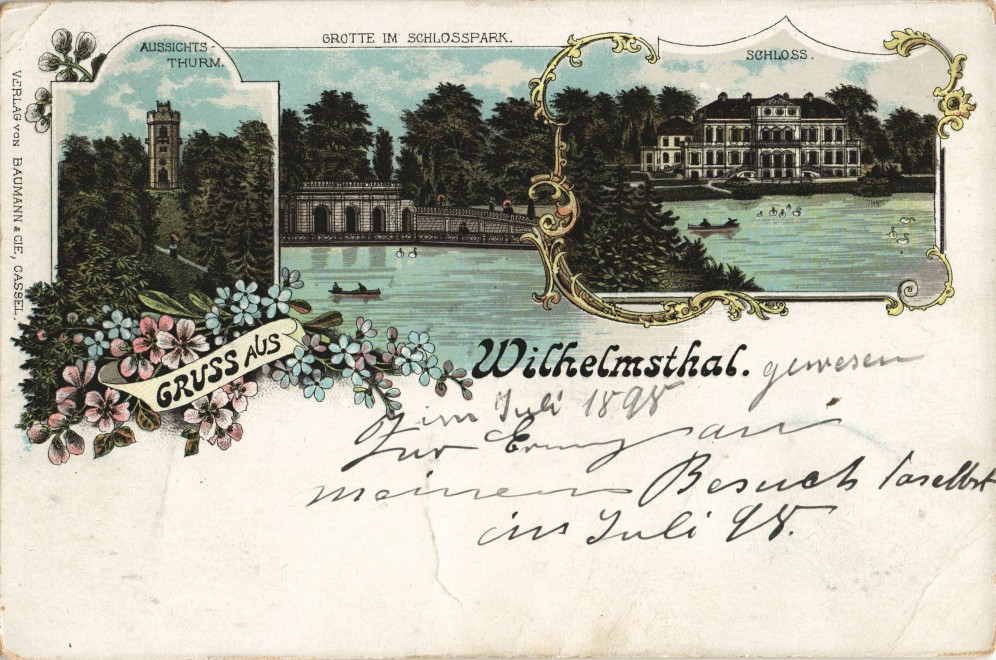 AUSSICHTS-
THURM.
GROTTE IM SCHLOSSPARK.
SCHLOSS.
VERLAG VON BAUMANN & CIE, CASSEL.
GRUSS AUS
Wilhelmsthal.
gewesen
im Juli 1898
Zur an
meinen Besuch daselbst
im Juli 98.